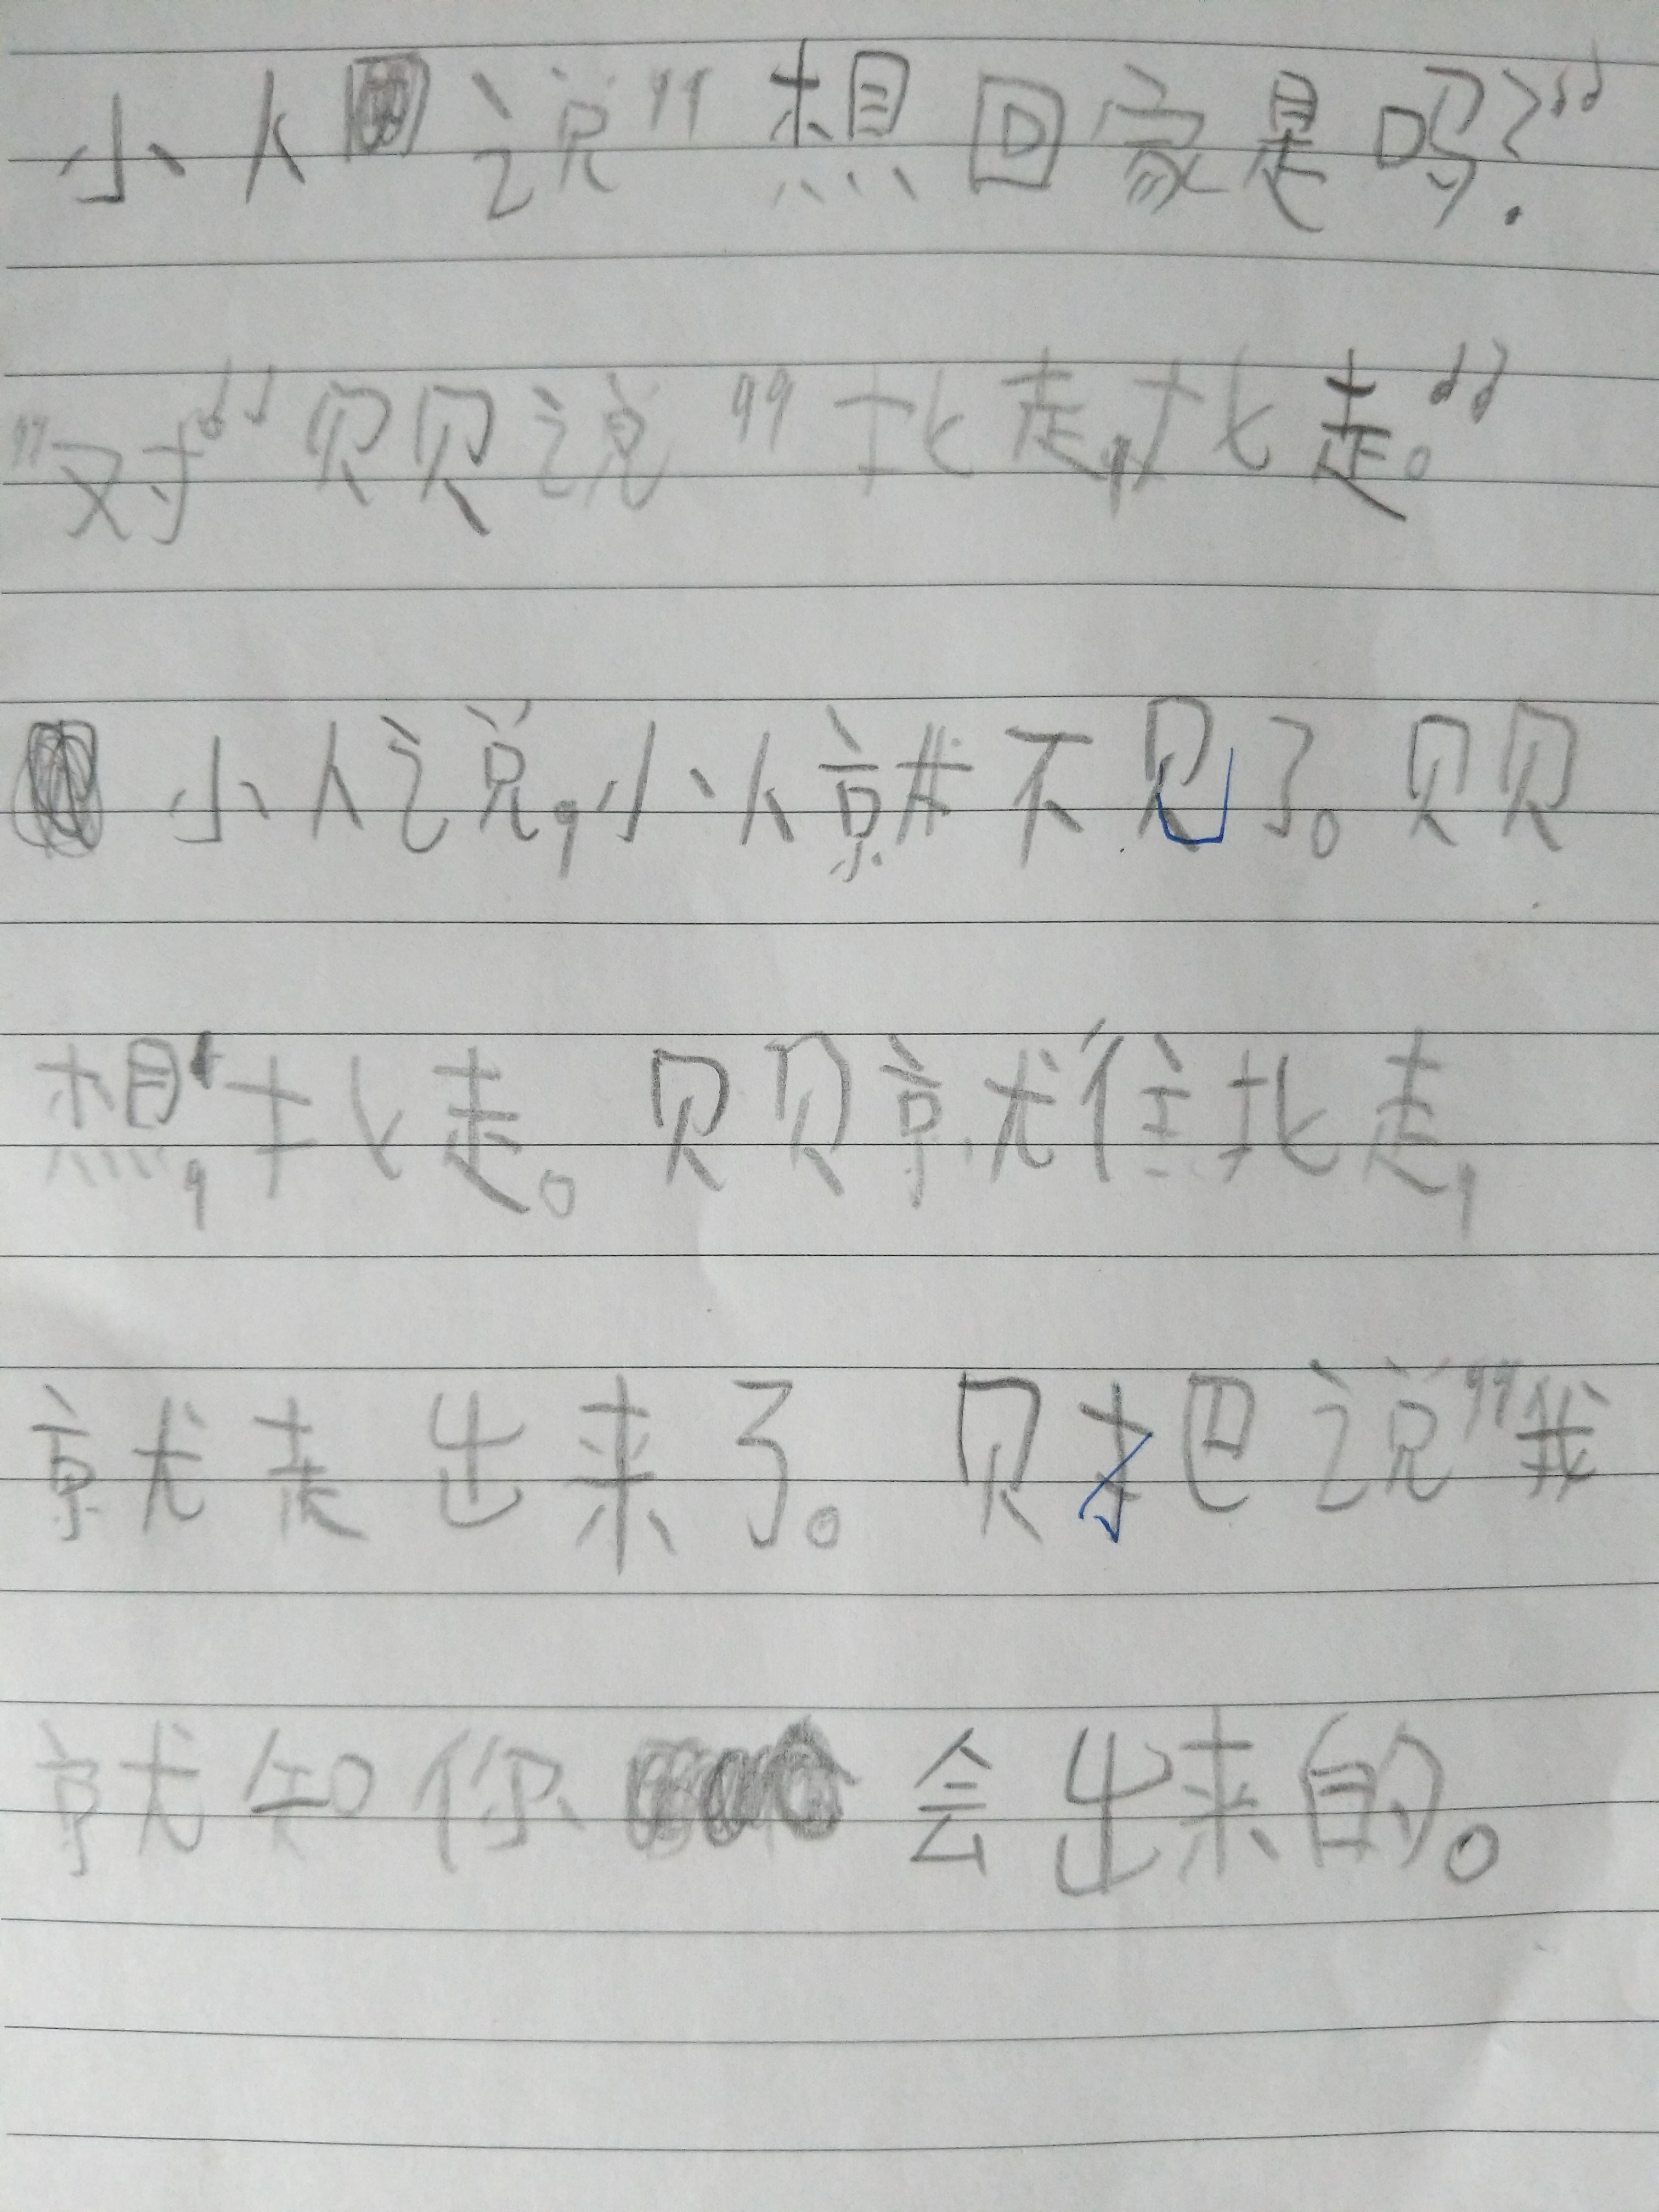 小人说"想回家是吗?"
"对"贝贝说"北走,北走。"
小人说,小人就不见了。贝贝
想,北走。贝贝就往北走,
就走出来了。贝爸说"我
就知你会出来的。